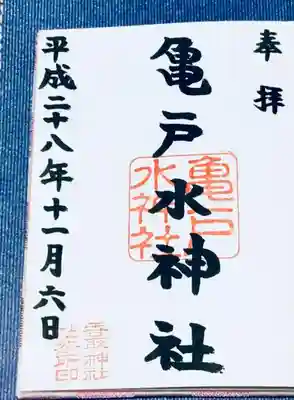 奉拝
亀戸水神社
平成二十八年十一月六日
亀戸
水神社
香取神社
社務所印